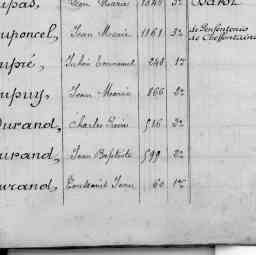 upas, Léon Marie 1840 3e
uponcel, Jean Marie 1161 3e de Penfentenio de Cheffontaines
upré, Jules Emmanuel 248 1re
upuy, Jean Marie 866 2e
Durand, Charles Louis 516 2e
urand, Jean Baptiste 599 2e
urand, Toussaint Jean 60 1re